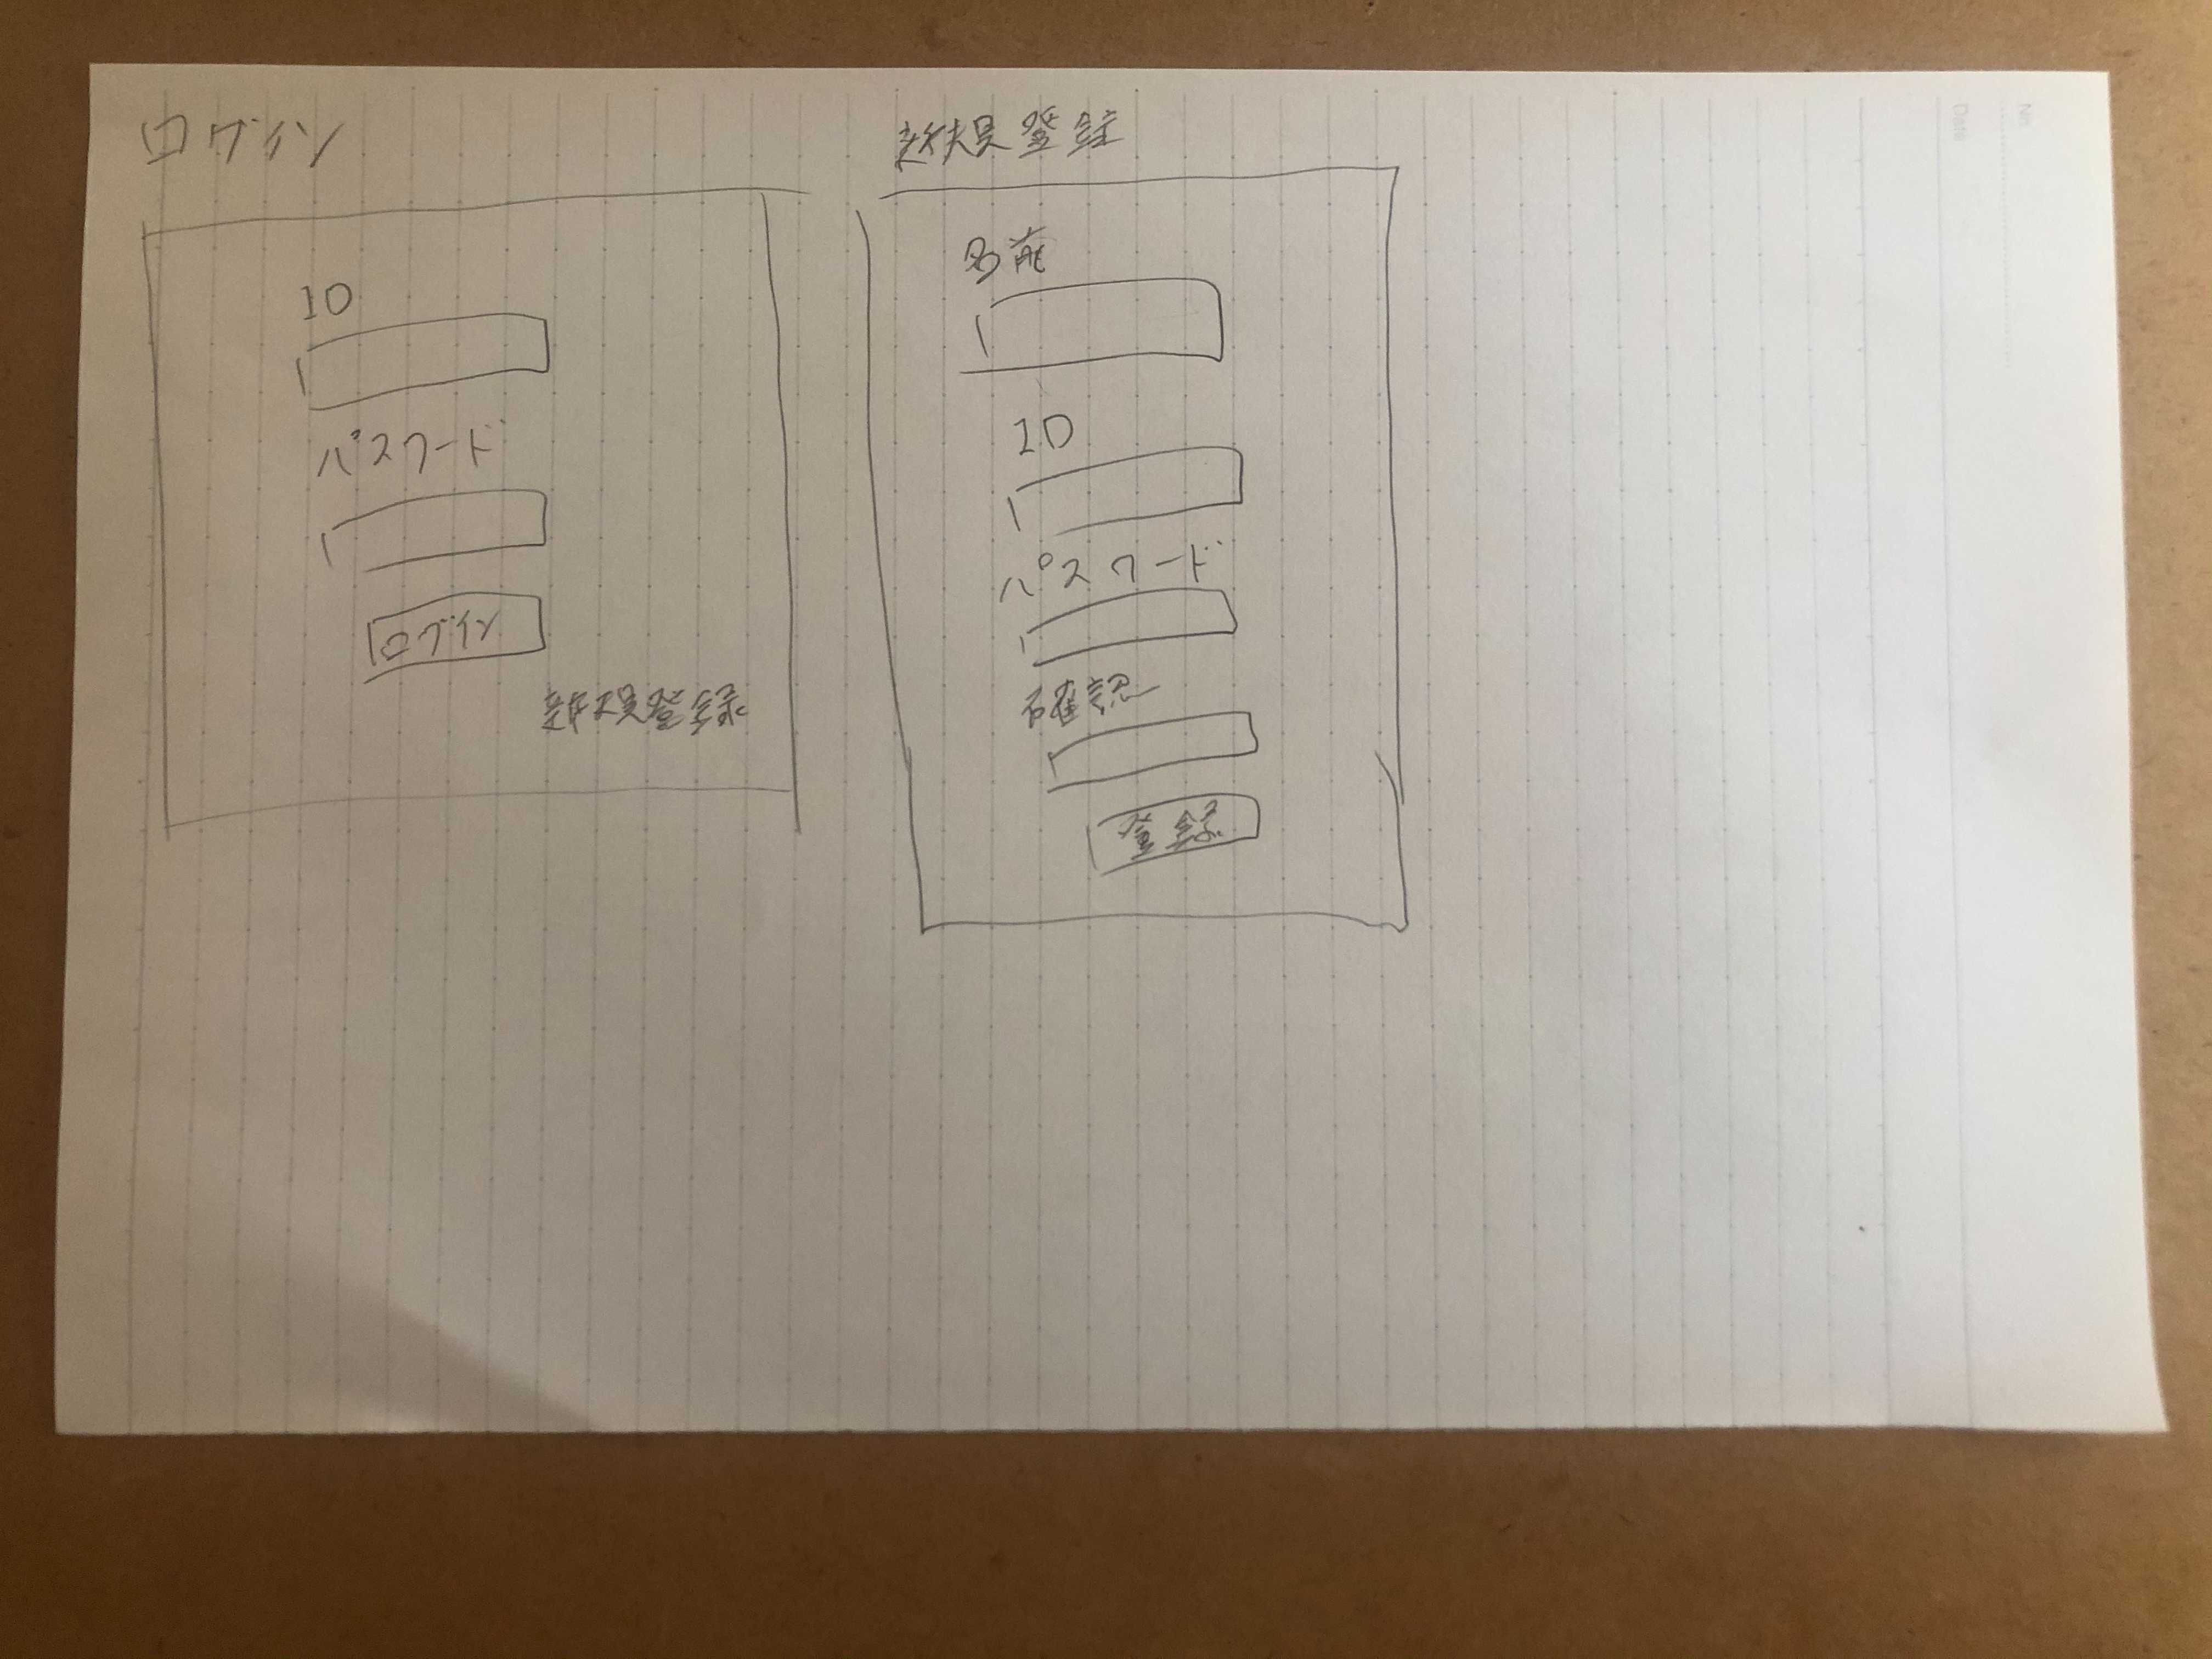 ログイン
ID
パスワード
ログイン
新規登録
新規登録
名前
ID
パスワード
確認
登録
No.
Date